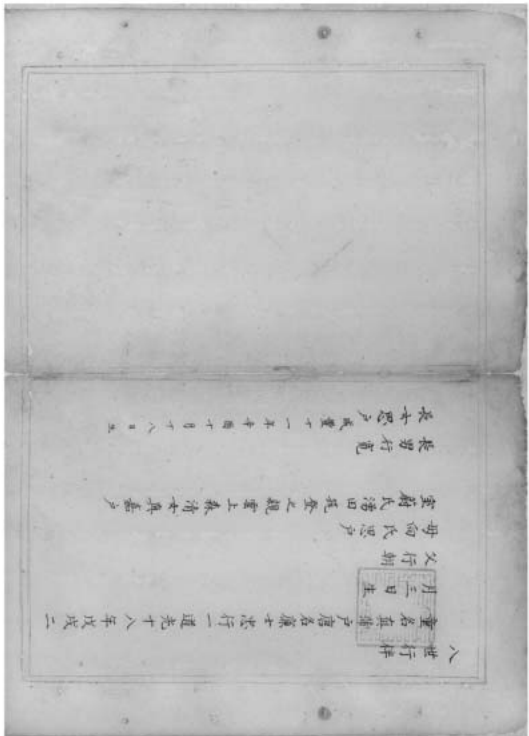 八世行祥
童名真蒲戸唐名廉士忠行一道光十八年戊戌二
月三日生
父行朝
母向氏思戸
室蔚氏湧田筑登之親雲上森清女真嘉戸
長男行寛
長女思戸咸豐十一年辛酉十月十八日生